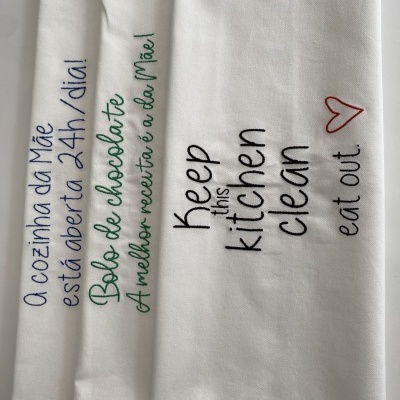 A cozinha da Mãe
está aberta 24h/dia!
Bolo de chocolate
A melhor receita é a da Mãe!
Keep
this
kitchen
clean
eat out.